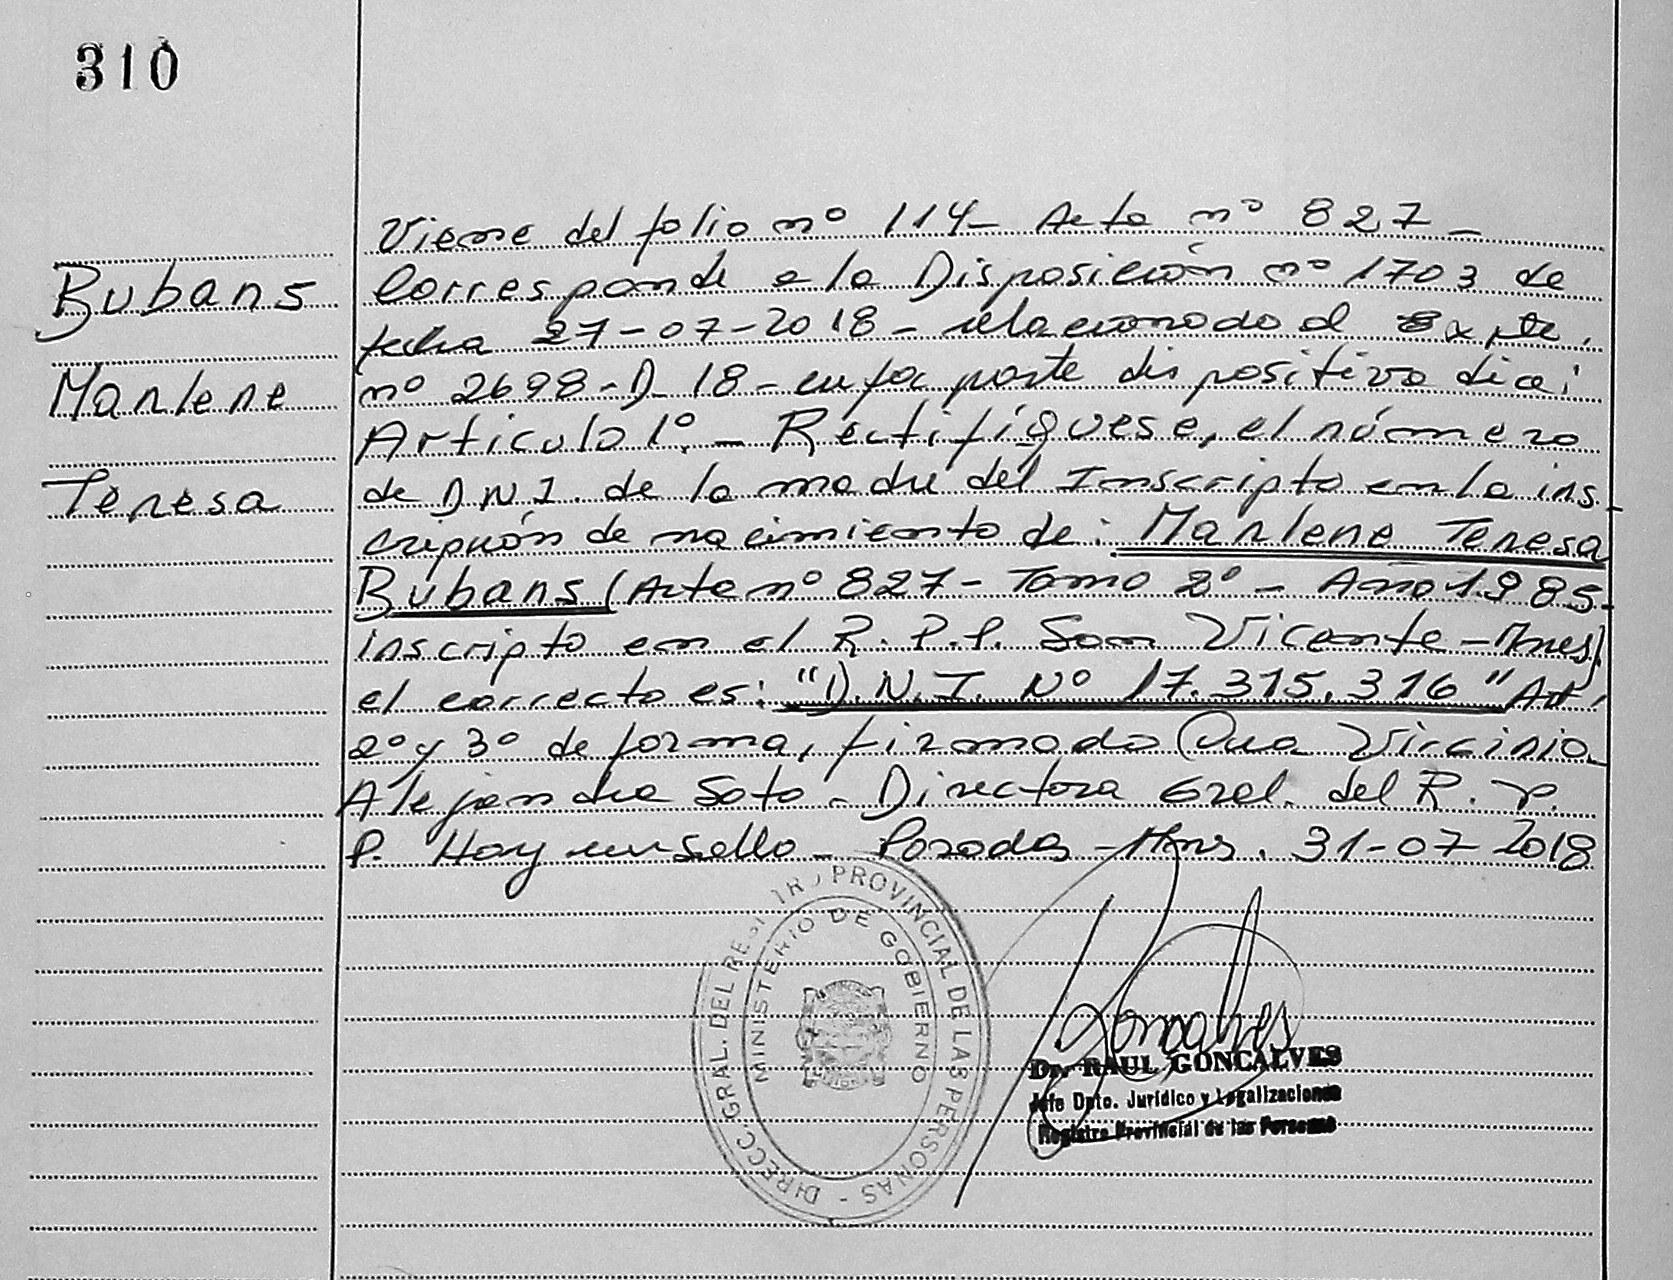 310
Bubans
Marlene
Teresa
Viene del folio nº 114- Acta nº 827-
Corresponde a la Disposición nº 1703 de
fecha 27-07-2018- relacionado al Expte.
nº 2698-D-18- cuya parte dispositiva dice:
Articulo 1º.- Rectifíquese, el número
de D.N.I. de la madre del Inscripto en la ins-
cripción de nacimiento de: Marlene Teresa
Bubans (Acta nº 827- Tomo 2º- Año 1985-
inscripto en el R.P.P. San Vicente-Mnes)
el correcto es: "D.N.I. Nº 17.315.316" Art,
2º y 3º de forma, firmado Virginia
Alejandra Soto- Directora Gral. del R.P.
P. Hay un sello- Posadas-Mns. 31-07-2018
DIRECC. GRAL. DEL REGISTRO PROVINCIAL DE LAS PERSONAS -
MINISTERIO DE GOBIERNO
Goncalves
Dr. RAUL GONCALVES
Jefe Dpto. Jurídico y Legalizaciones
Registro Provincial de las Personas